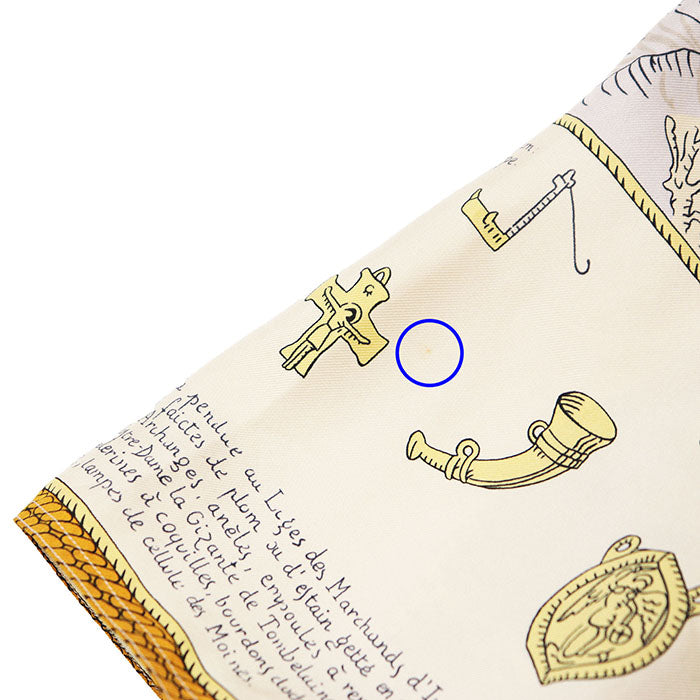 pendue au Liges des Marchands d'I
faictes de plom ou d'estain getté en
Archanges, anelès, enpoules à re
tre-Dame la Gizante de Tombelain
erines à coquilles, bourdons do
lampes de cellule des Moines